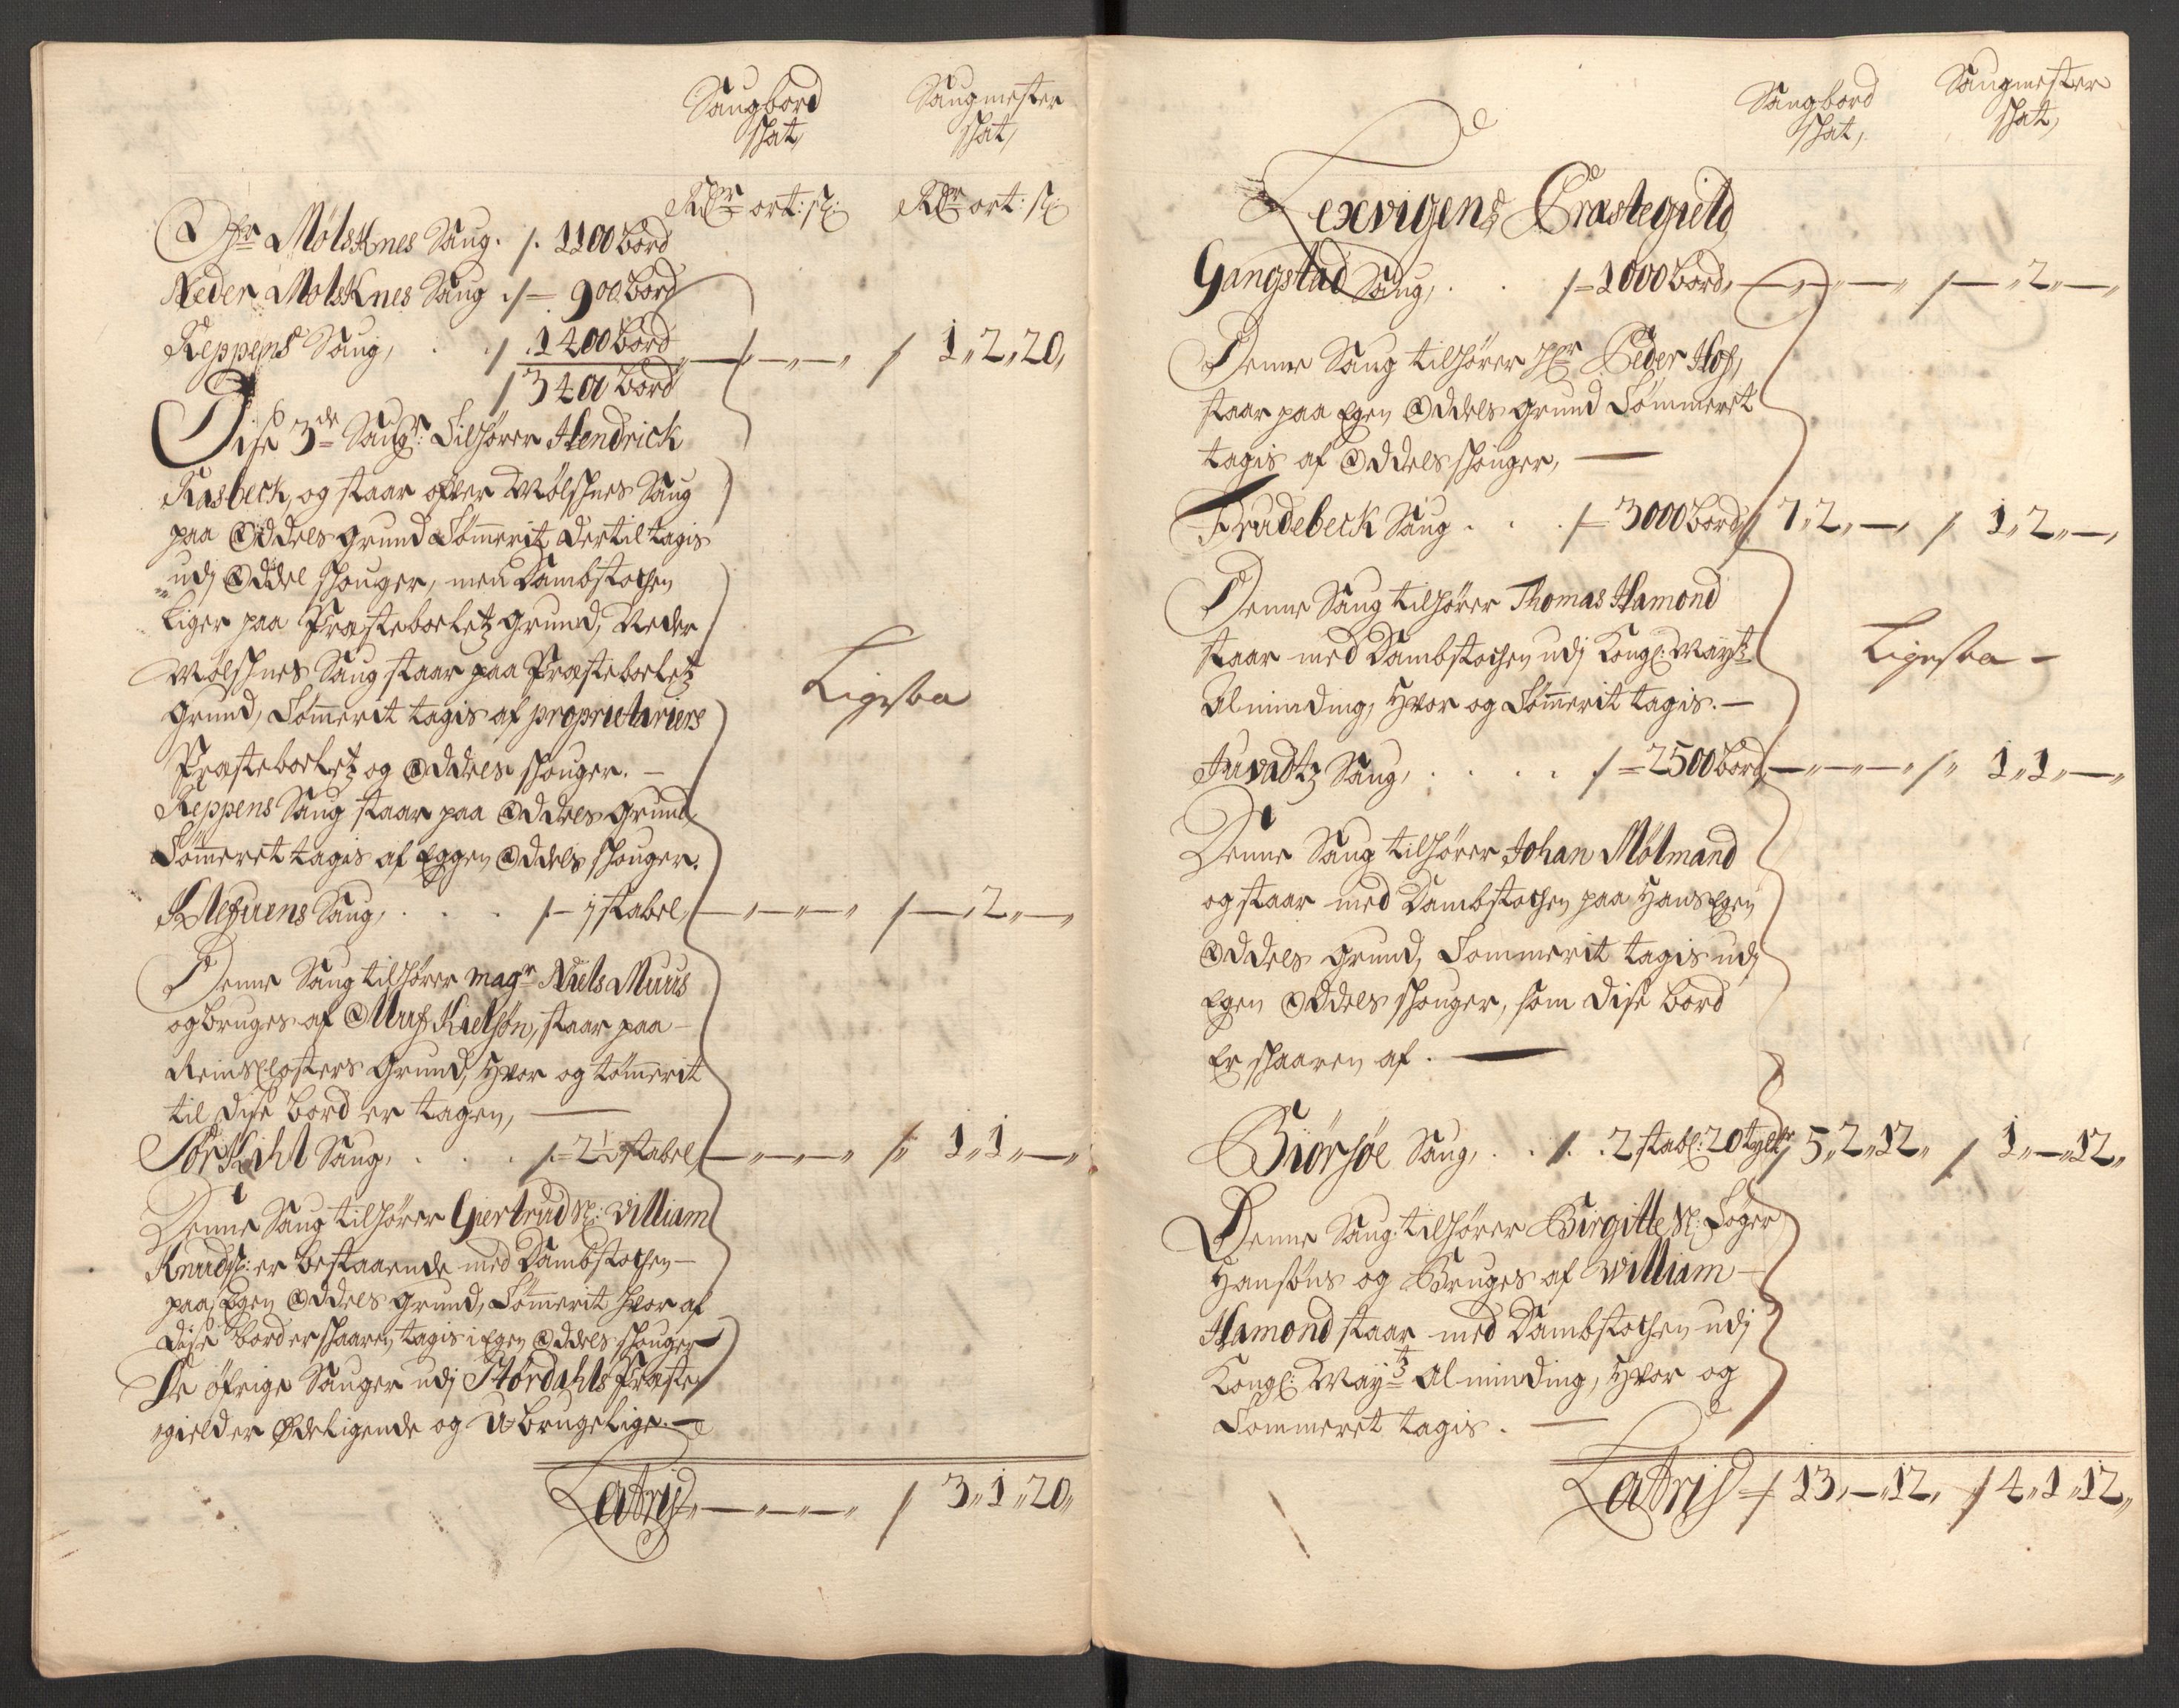 Saugbord Saugmester
skat, skat,
Rdr ort: s: Rdr ort: s:
Ofr Mølsknes Saug . /. 1100 bord
Neder Molsknes Saug ./= 900 bord
Reppens Saug, . . / 1400 bord — / 1„2„20„
/ 3400 bord
Disse 3de Saugr: Tilhører Hendrick
Kasbeck, og staar ofver Mølschnes Saug
paa Oddels grund Tømerit dertil tagis
udj Oddel schouger, men Dambstochen
liger paa Præsteboeletz grund, Neder
Mølschnes Saug staar paa Præsteboeletz
grund, Tømerit tagis af proprietariers
Præsteboeletz og Oddels schouger. —
Ligesaa
Reppens Saug staar paa Oddels grund
Tømeret tagis af Eggen Oddels schouger.
Klefuens Saug, . . . /— 1 stabel, — / —„2„—„
Denne Saug tilhører magr Niels Muus
og bruges af Oluf Kielsøn, staar paa
Reinsclosters Grund, hvor og tømerit
til disse bord er tagen, —
Torskihl Saug, . . . /.= 2½ stabel, — /„ 1„1„—„
Denne Saug tilhører Giertrud Sl: Villiam
Knuds: er bestaaende med Dambstochen
paa Egen Oddels grund, Tømerit hvor af
disse bord er schaaren tagis i Egen Oddels schouger
De øfrige Sauger udj Størdahls Præste
gield er Ødeligende og U-brugelige. —
Latris — / 3„1„20„
Saugbord Saugmester
skat, skat,
Lexvigens Præstegield
Gangstad Saug, . . /= 1000 bord, — / —„2„—„
Denne Saug tilhører Hr Peder Hof,
staar paa Egen Oddels grund Tømmerit
tagis af Oddels schouger, —
Frudebeck Saug . . . /= 3000 bord / 7„2„—„ / 1„2„—„
Denne Saug tilhører Thomas Hamond
staar med Dambstochen udj Kongl: Maytz
Alminding, hvor og Tømerit tagis. —
Ligesaa —
Juvadtz Saug, . . . . /= 2500 bord, — /„ 1„1„—„
Denne Saug tilhører Johan Mølmand
og staar med Dambstochen paa hans Egen
Oddels grund, Tommerit tagis udj
Egen Oddels schouger, som disse bord
Er schaaren af. —
Biørsøe Saug, . . /. . 2 stabl: 20 tylter / 5„2„12„ / 1„—„12„
Denne Saug tilhører Birgitte Sl: Søger
Hansøns og Bruges af William
Hamond staar med Dambstochen udj
Kongl: Maytz Alminding, hvor og
Tommeret tagis. —
Latris / 13„—„12„ / 4„1„12„